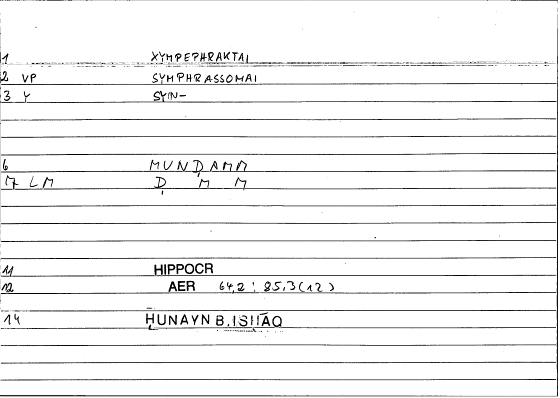 1 XYMPEPHRAKTAI
2 VP SYMPHRASSOMAI
3 Y SYN-
6 MUNḌAMM
7 LM Ḍ M M
11 HIPPOCR
12 AER 64,2 : 85,3 (12)
14 ḤUNAYN B.ISḤĀQ